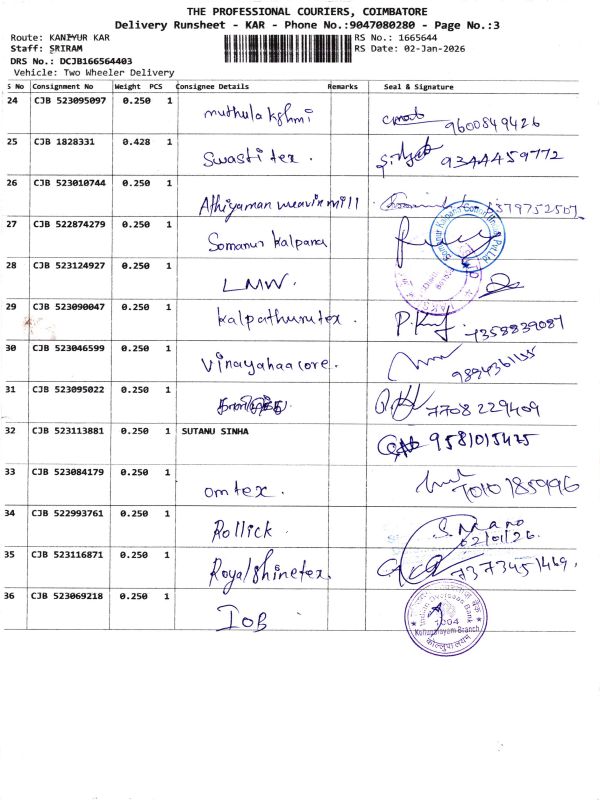 THE PROFESSIONAL COURIERS, COIMBATORE
Delivery Runsheet - KAR - Phone No.:9047080280 - Page No.:3
Route: KANIYUR KAR RS No.: 1665644
Staff: SRIRAM RS Date: 02-Jan-2026
DRS No.: DCJB166564403
Vehicle: Two Wheeler Delivery
S No Consignment No Weight PCS Consignee Details Remarks Seal & Signature
24 CJB 523095097 0.250 1 muthulakshmi 9600849426
25 CJB 1828331 0.428 1 Swasti tex. 9344459772
26 CJB 523010744 0.250 1 Athiyaman weavin mill
27 CJB 522874279 0.250 1 Somanur Kalpana
28 CJB 523124927 0.250 1 LMW.
29 CJB 523090047 0.250 1 Kalpatharutex. 7358839087
30 CJB 523046599 0.250 1 Vinayahaacore.
31 CJB 523095022 0.250 1 7708229409
32 CJB 523113881 0.250 1 SUTANU SINHA 9581015425
33 CJB 523084179 0.250 1 omtex.
34 CJB 522993761 0.250 1 Rollick. S. Mano
02/01/26.
35 CJB 523116871 0.250 1 Royalshinetex. 7373451469.
36 CJB 523069218 0.250 1 IOB
Indian Overseas Bank
1004